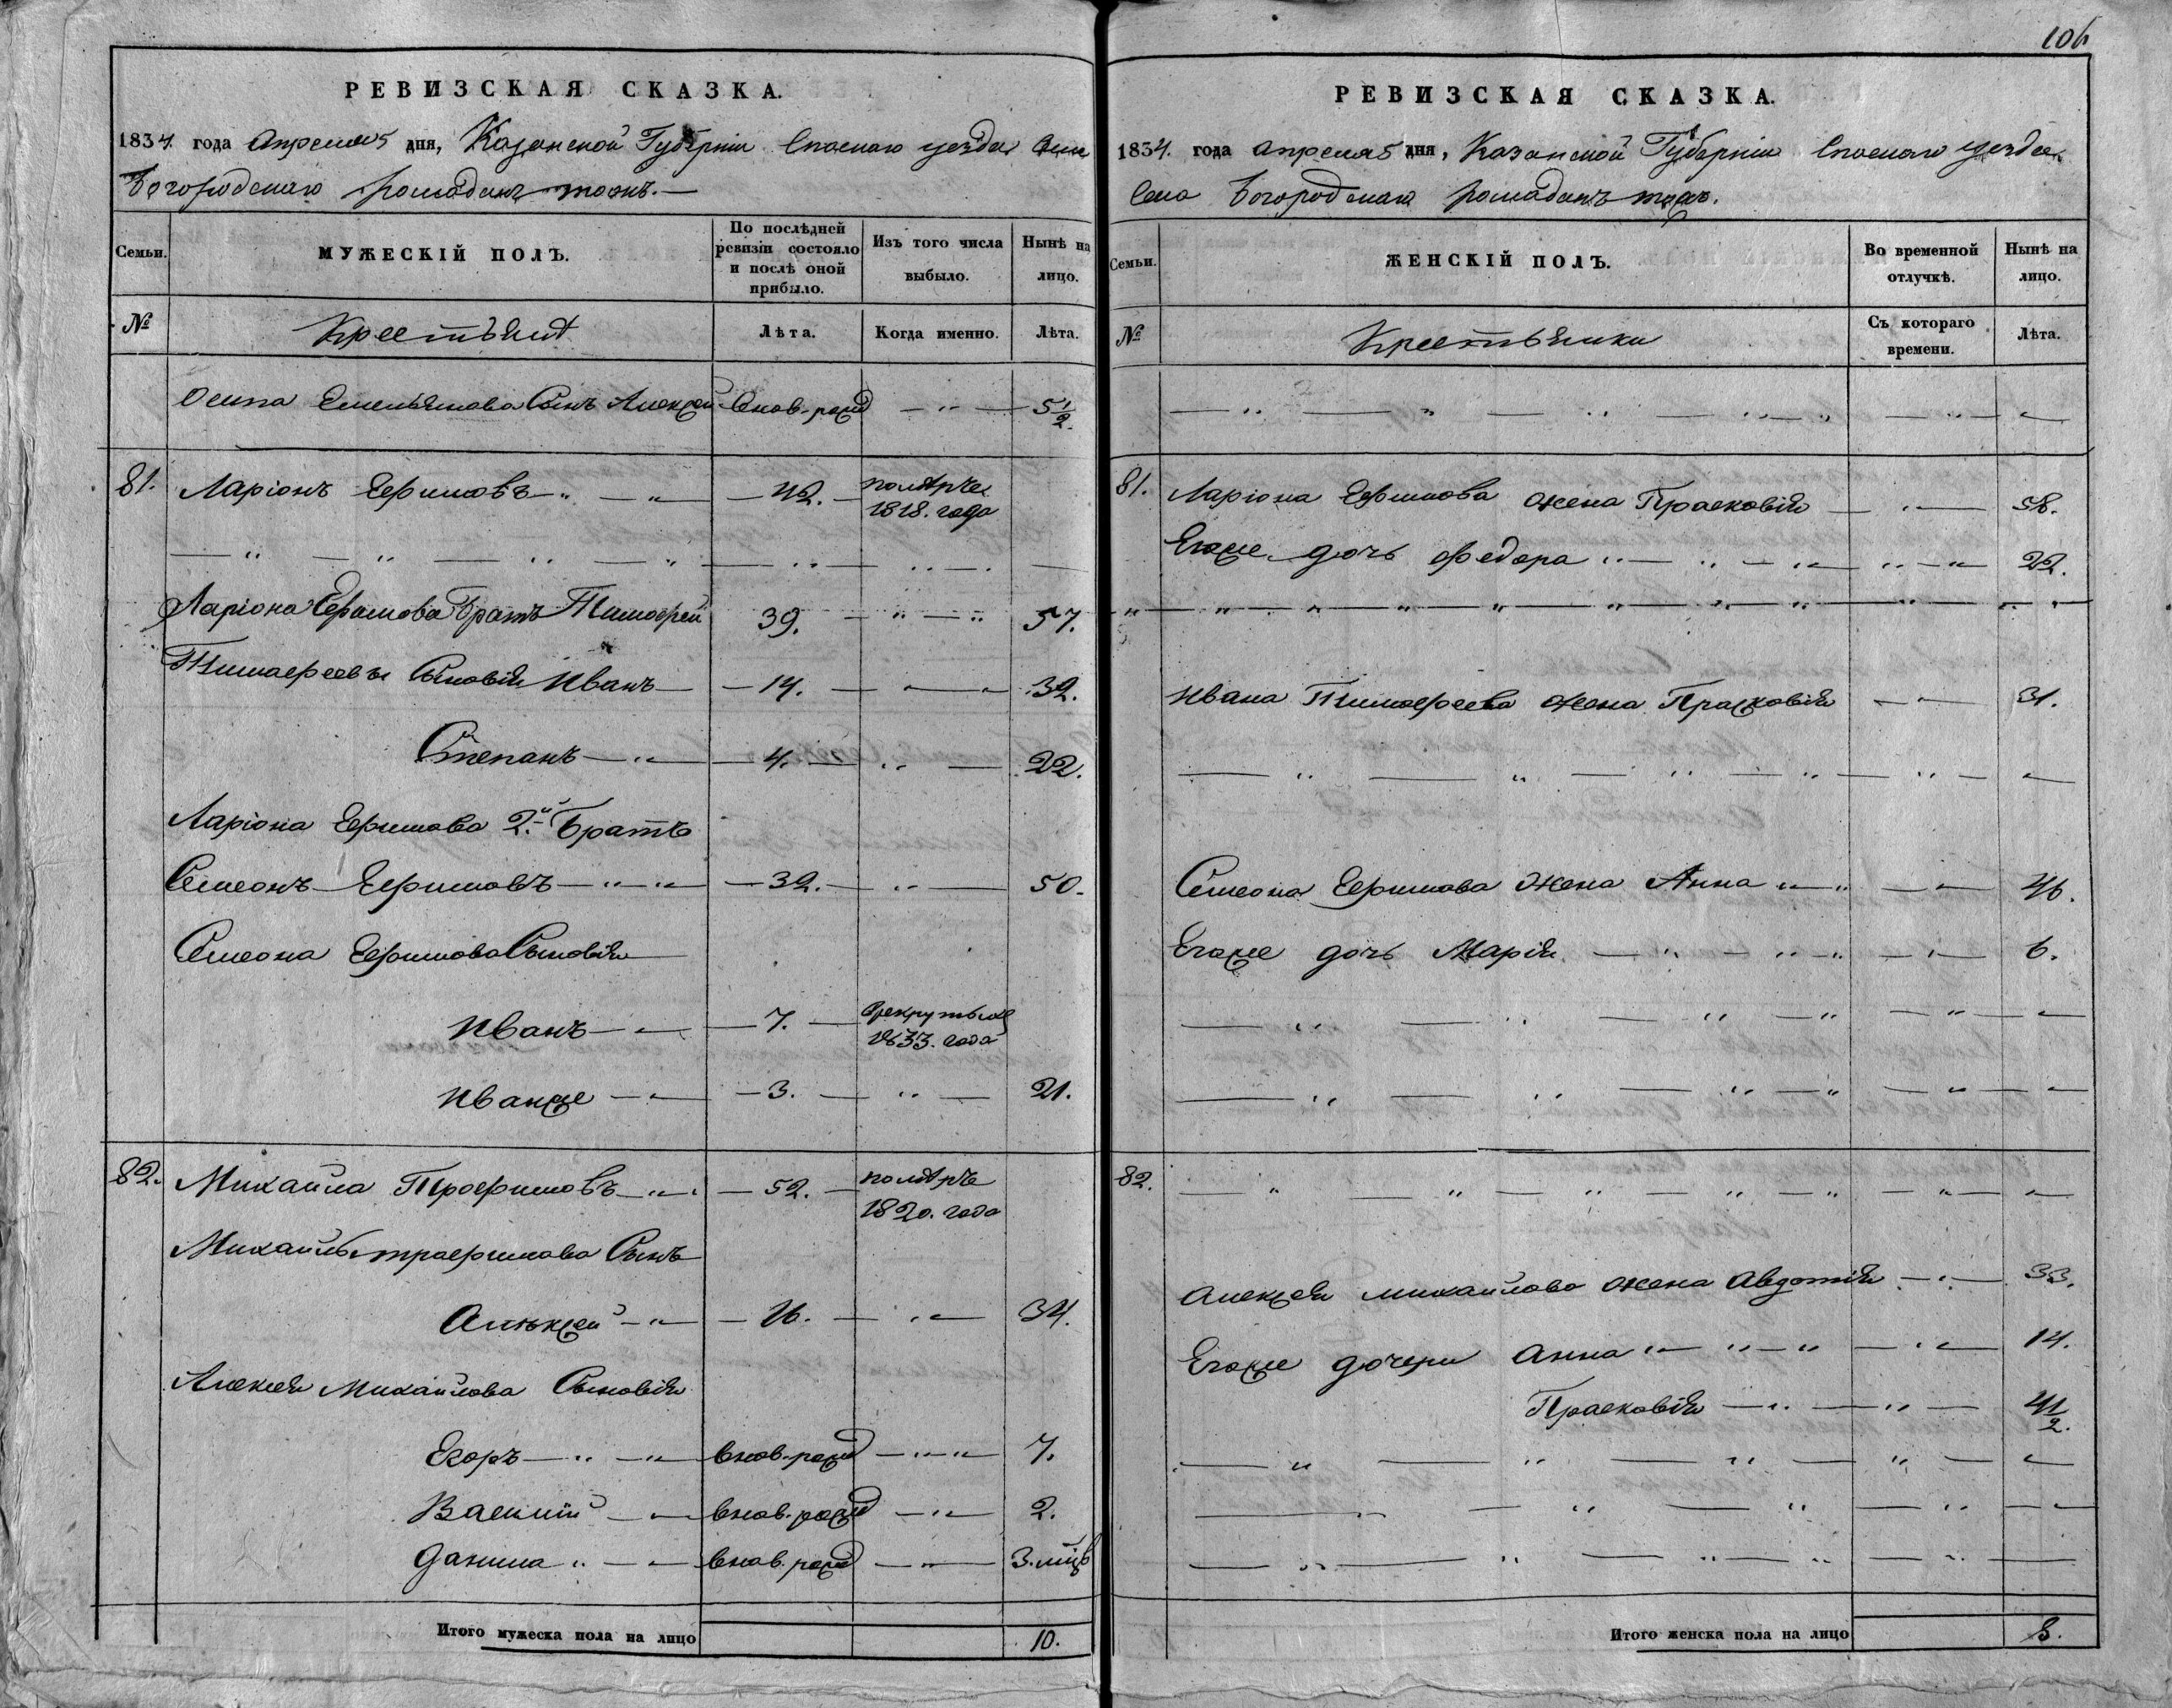 РЕВИЗСКАЯ СКАЗКА.
1834. года Апреля 5 дня, Казанской Губерніи Спаскаго уезда Села
Богородскаго Ромаданъ тожъ.
Семьи.
МУЖЕСКІЙ ПОЛЪ.
По послѣдней ревизіи состояло и послѣ оной прибыло.
Изъ того числа выбыло.
Нынѣ на лицо.
№
Крестьяне
Лѣта.
Когда именно.
Лѣта.
Осипа Емельянова Сынъ Алексей внов. рожд 5 1/2.
81. Ларіонъ Ефимовъ 42. помре 1818. года
Ларіона Ефимова братъ Тимофей 39. 57.
Тимофеевы Сыновія Иванъ 14. 32.
Степанъ 4. 22.
Ларіона Ефимова 2й Братъ
Семенъ Ефимовъ 32. 50.
Семена Ефимова Сыновія
Иванъ 7. 1833. года
Иванже 3. 21.
82. Михайла Трофимовъ 52. помре 1820. года
Михайлы трофимова Сынъ
Алексей 16. 34.
Алексея Михайлова Сыновія
Егоръ внов. рожд 7.
Василий внов. рожд 2.
Данила внов. рожд 3. мцъ
Итого мужеска пола на лицо 10.
106
РЕВИЗСКАЯ СКАЗКА.
1834. года апреля 5 дня, Казанской Губерніи Спаскаго уезда
Села Богородскаго Ромаданъ тожъ.
Семьи.
ЖЕНСКІЙ ПОЛЪ.
Во временной отлучкѣ.
Нынѣ на лицо.
№
Крестьянки
Съ котораго времени.
Лѣта.
81. Ларіона Ефимова жена Прасковія 58.
Егоже дочь Федора 22.
Ивана Тимофеева жена Прасковія 31.
Семена Ефимова жена Анна 46.
Егоже дочь Марія 6.
82.
Алексея михайлова жена Авдотия 33.
Егоже дочери Анна 14.
Прасковія 4 1/2.
Итого женска пола на лицо 8.